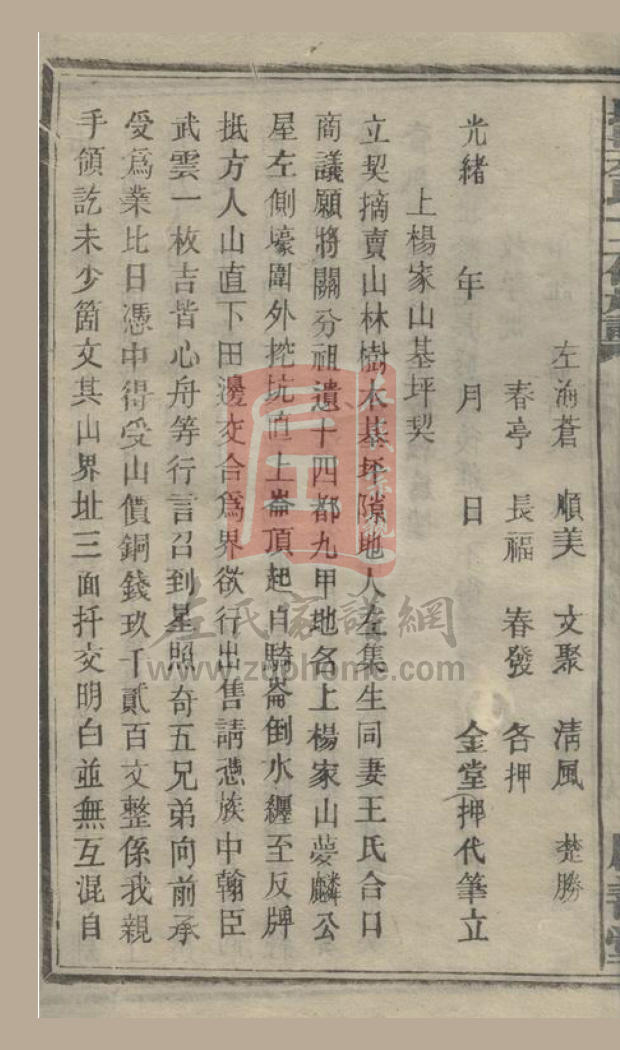 左海蒼 順美 文聚 清風 楚勝
春亭 長福 春發 各押
光緒 年 月 日 金堂押代筆立
上楊家山基坪契
立契摘賣山林樹木基坪隙地人左集生同妻王氏合口
商議願將關分祖遺十四都九甲地名上楊家山夢麟公
屋左側壕圍外挖坑直上崙頂起自騎崙倒水纏至反牌
抵方人山直下田邊交合爲界欲行出售請憑族中翰臣
武雲一枚吉皆心舟等行言召到星照奇五兄弟向前承
受爲業比日憑中得受山價銅錢玖千貳百文整係我親
手領訖未少箇文其山界址三面扦交明白並無互混自
左氏家譜網
www.zuohome.com